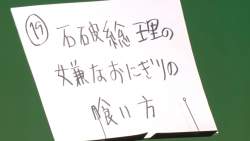 ⑲
石破総理の
嫌なおにぎりの
喰い方